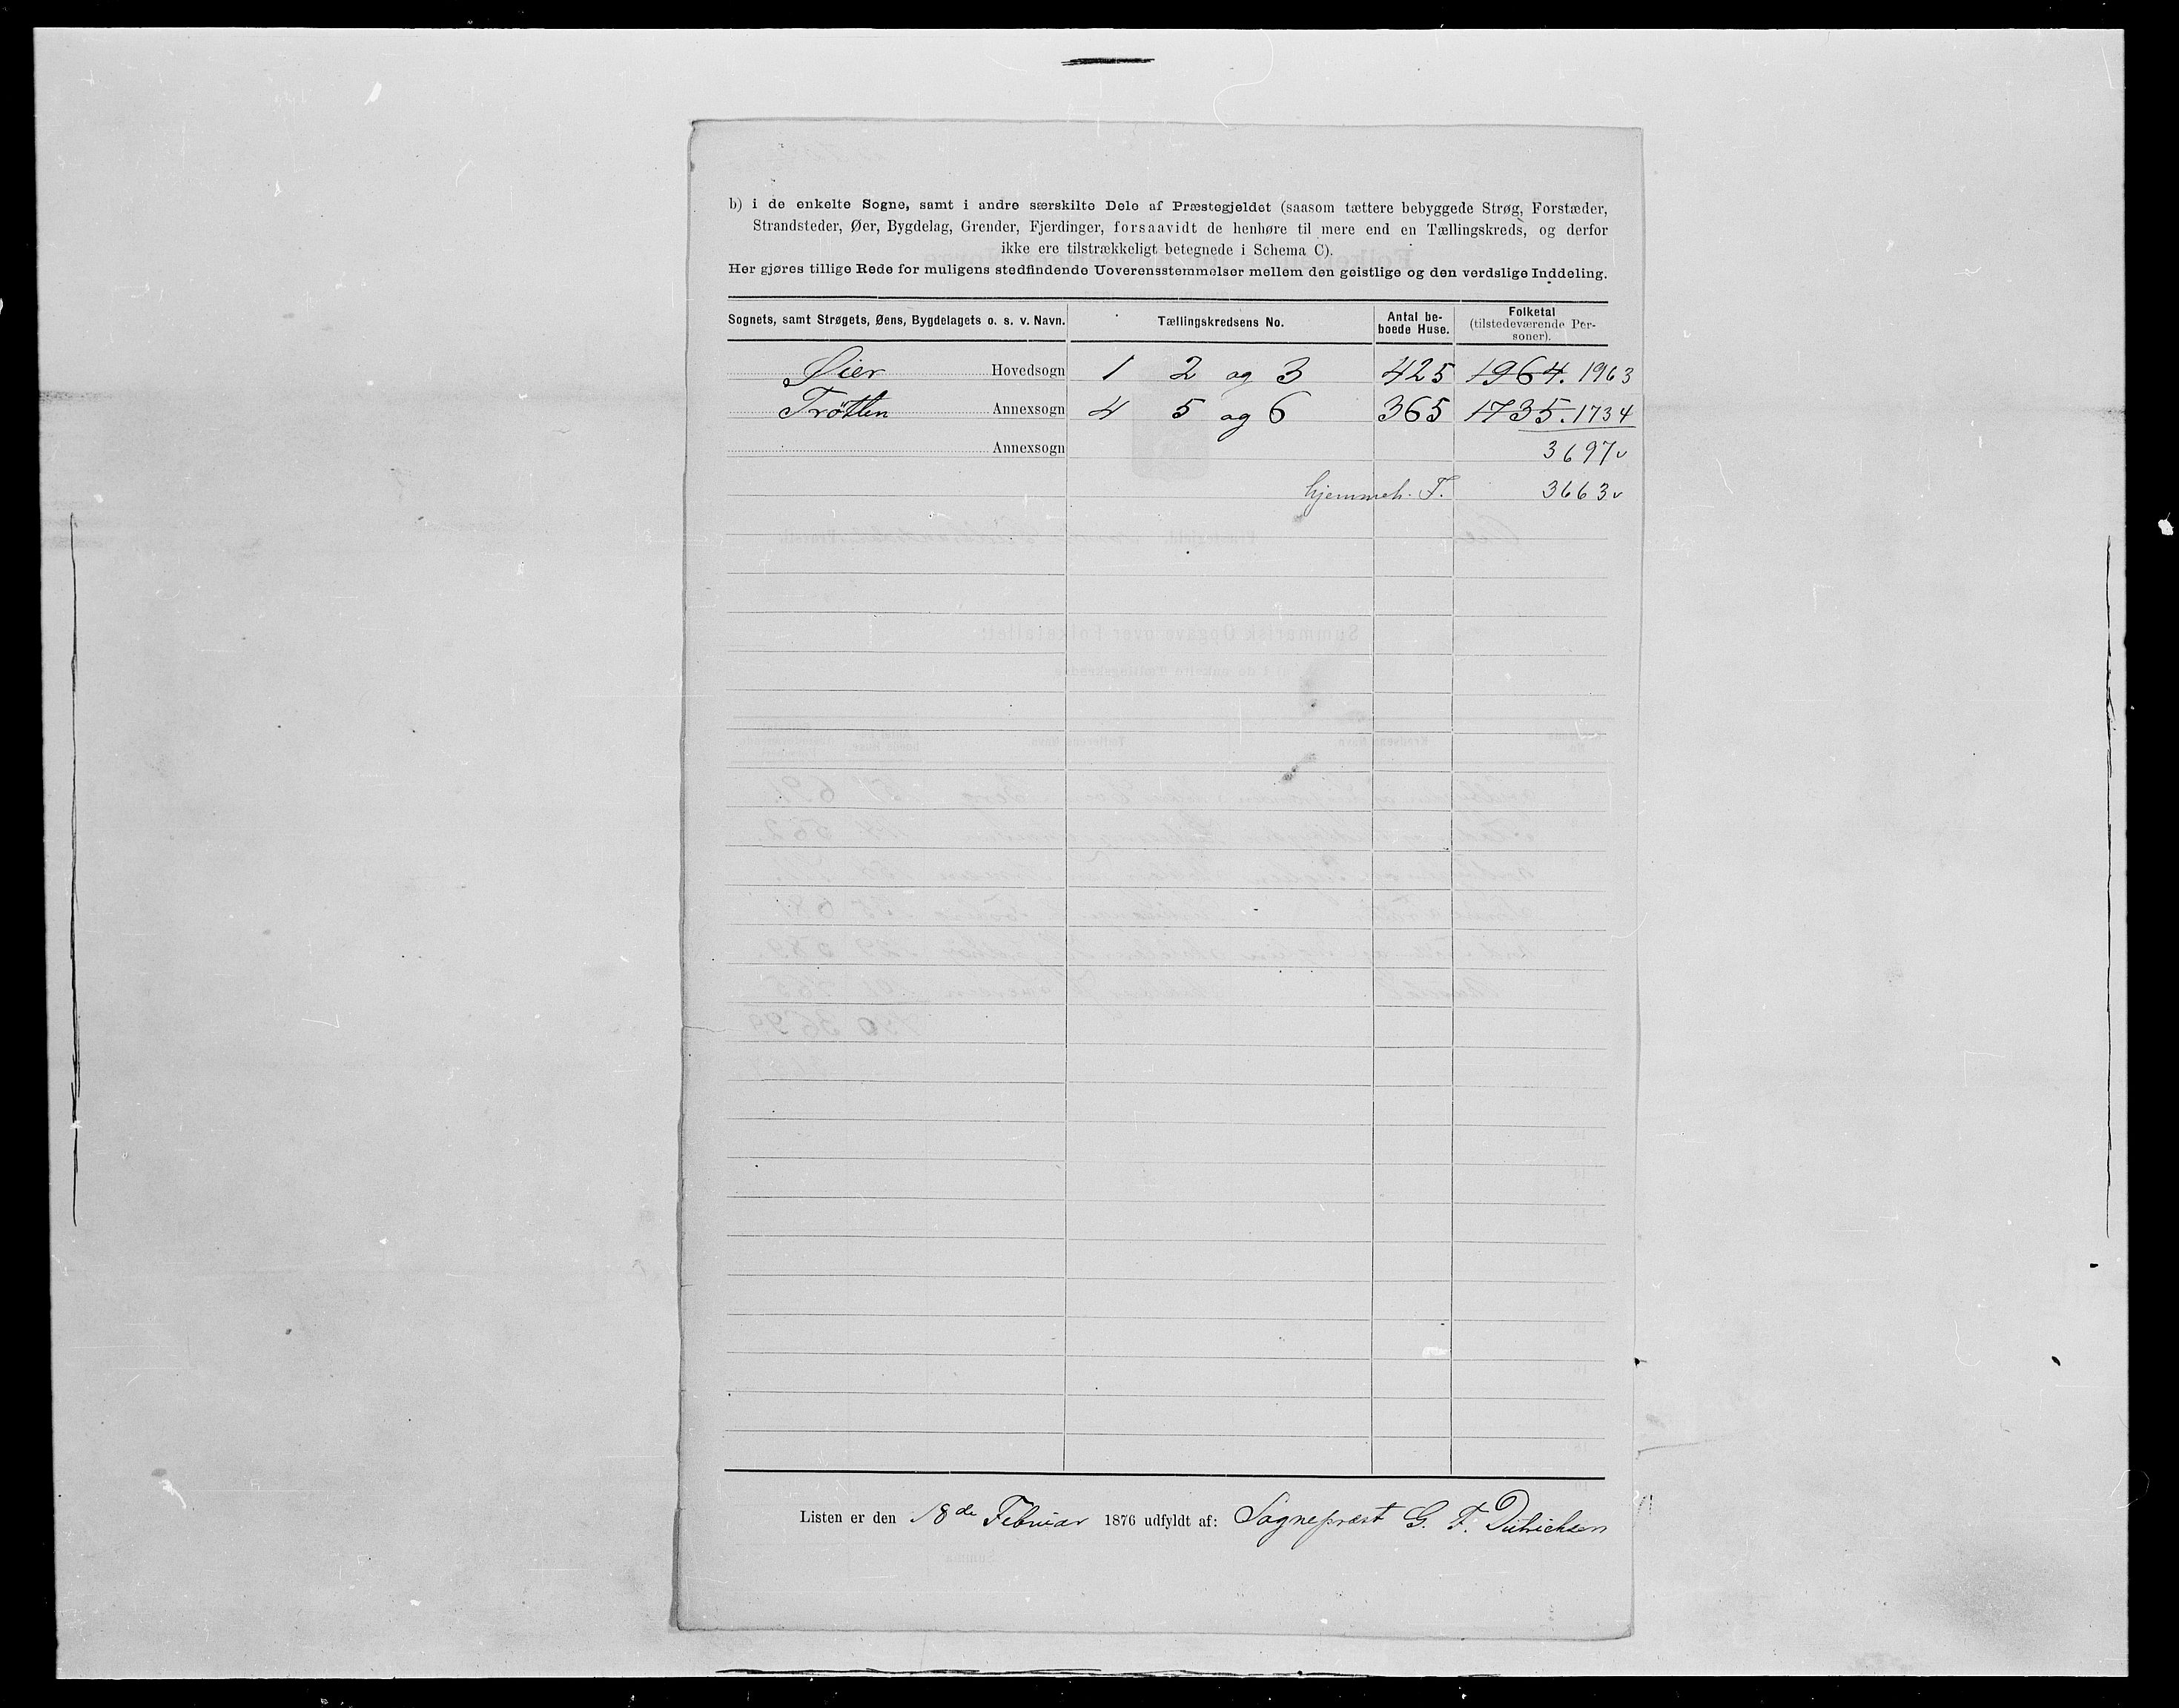 b) i de enkelte Sogne, samt i andre særskilte Dele af Præstegjeldet (saasom tættere bebyggede Strøg, Forstæder,
Strandsteder, Øer, Bygdelag, Grender, Fjerdinger, forsaavidt de henhøre til mere end en Tællingskreds, og derfor
ikke ere tilstrækkeligt betegnede i Schema C).
Her gjøres tillige Rede for muligens stedfindende Uoverensstemmelser mellem den geistlige og den verdslige Inddeling.
Sognets, samt Strøgets, Øens, Bygdelagets o. s. v. Navn. Tællingskredsens No. Antal be-boede Huse. Folketal (tilstedeværende Per-soner).
Øier Hovedsogn 1 2 og 3 425 1964. 1963
Trötten Annexsogn 4 5 og 6 365 1735. 1734
Annexsogn 3697
hjemmeh. F. 3663
Listen er den 18de Februar 1876 udfyldt af: Sognepræst G. F. Ditrichsen